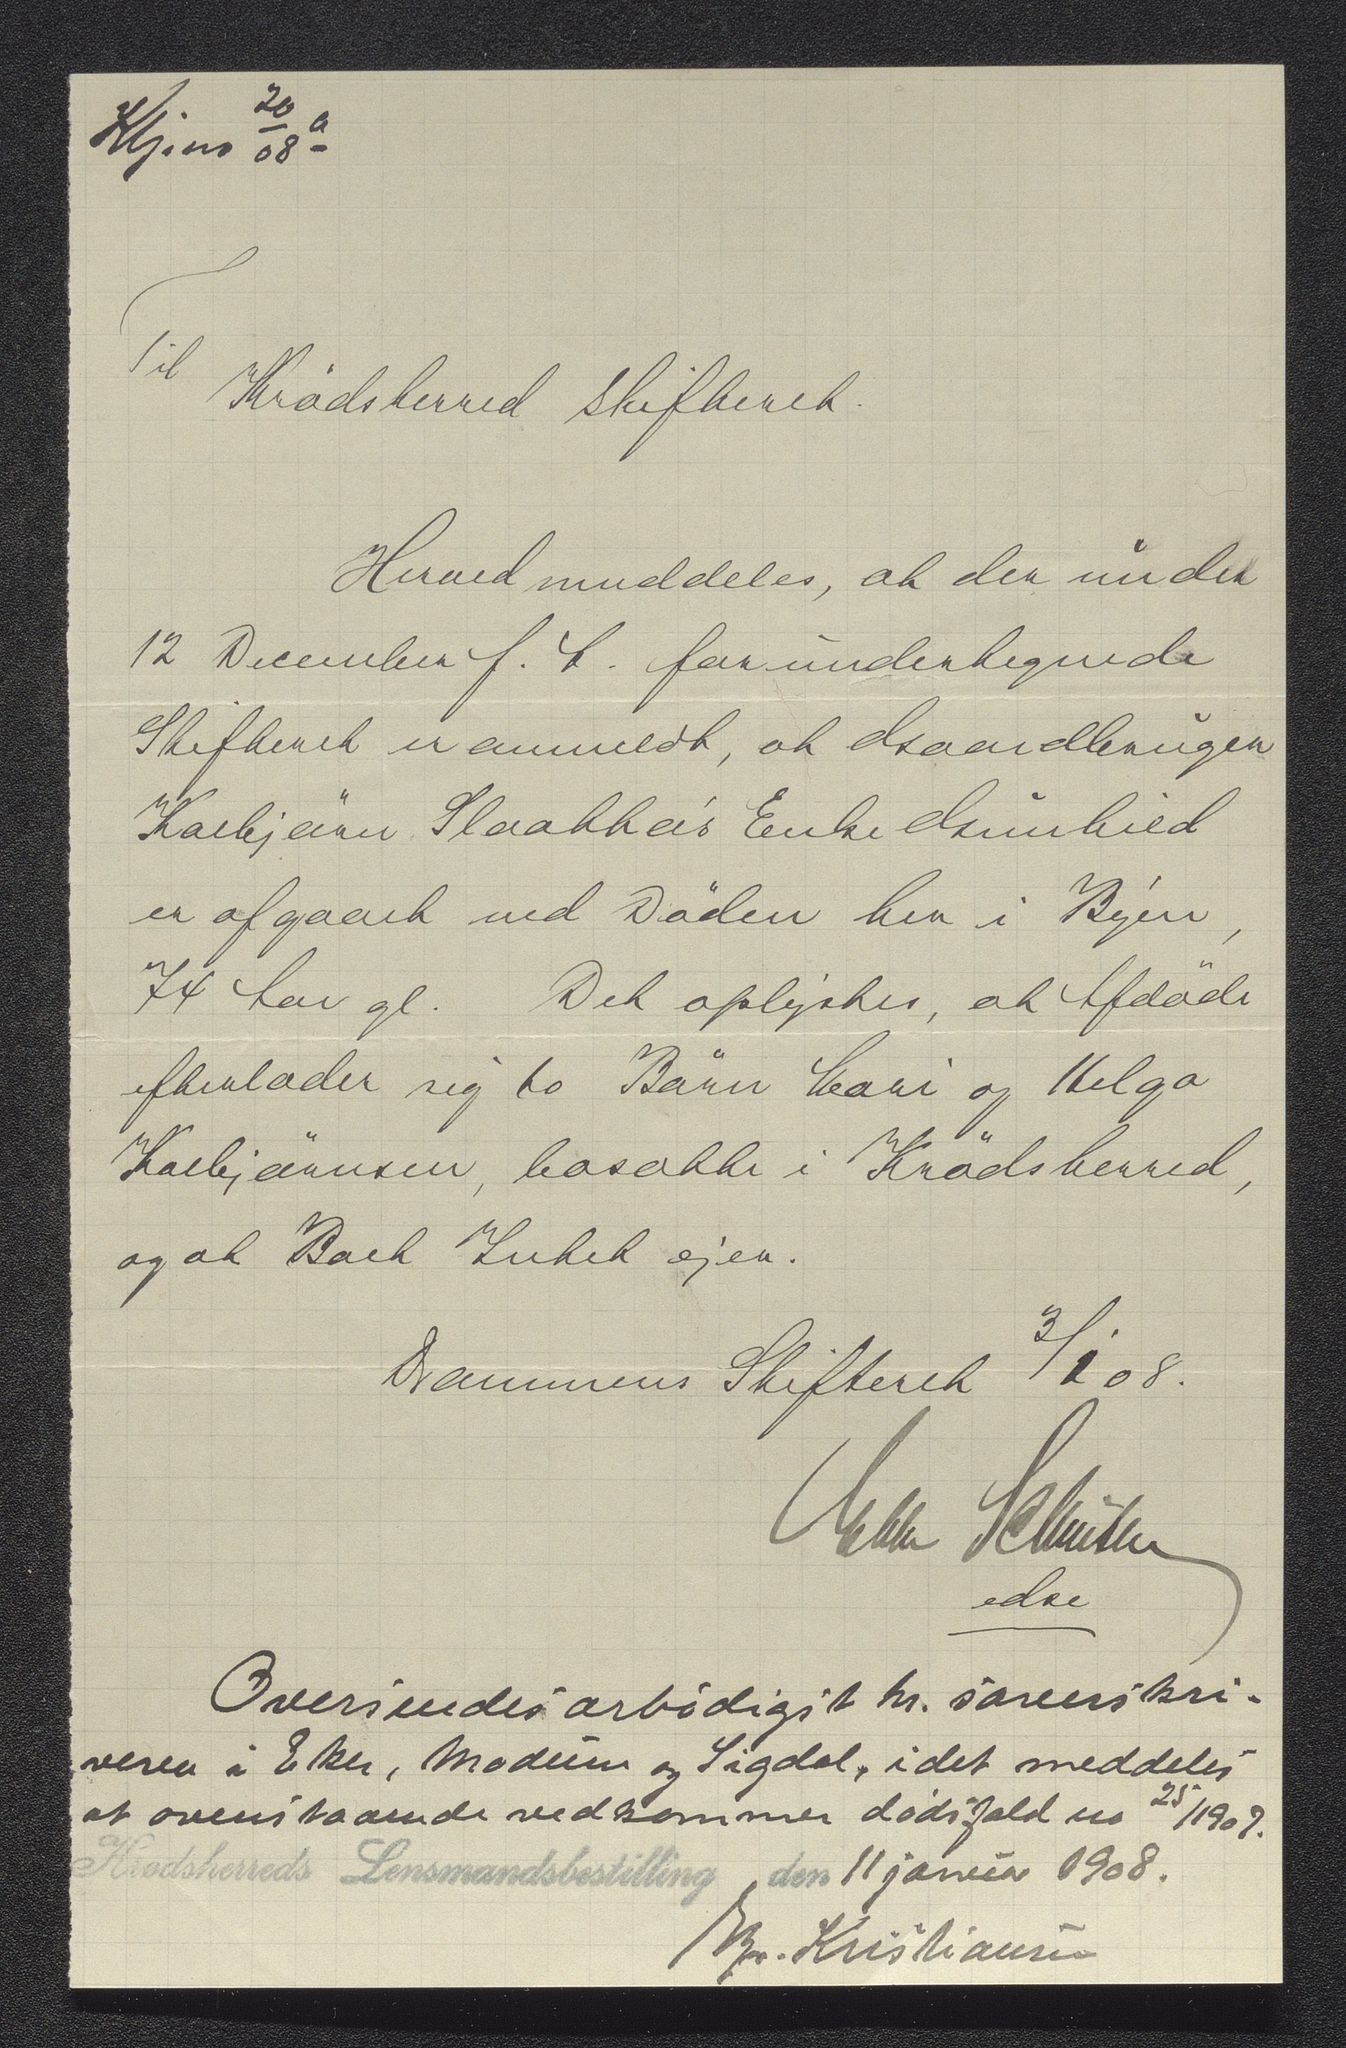 Kl. j.no 20/08 a
Til
Krödsherred Skifteret.
Herved meddeles, at der under
12 December f. A. for undertegnede
Skifteret er anmeldt, at
Kolbjörn Slaattas Enke
er afgaaet ved Döden her i Byen,
74 Aar gl. Det oplyses, at Afdöde
efterlader sig to Börn Kari og Helga
Kolbjörnsen, bosatte i Krödsherred,
og at Boet Intet ejer.
Drammens Skifteret 3/1 08.
edse
Oversendes ærbødigst hr. sorenskri-
veren i Eker, Modum og Sigdal, idet meddeles
at ovenstaaende vedkommer dødsfald no 25/1907.
Krødsherreds Lensmandsbestilling den 11 januar 1908.
Kristiansen